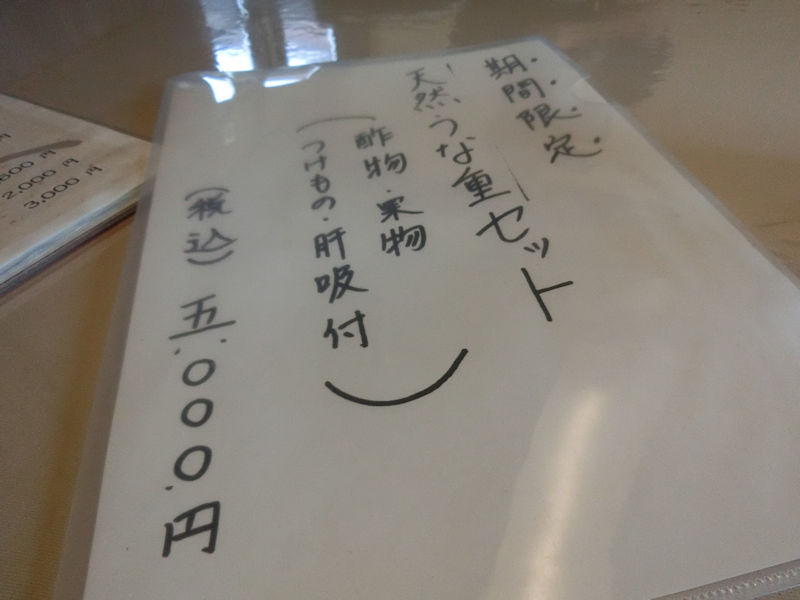 期間限定
天然うな重セット
(酢物・果物
つけもの・肝吸付)
(税込)五.000円
2,000円
3,000円